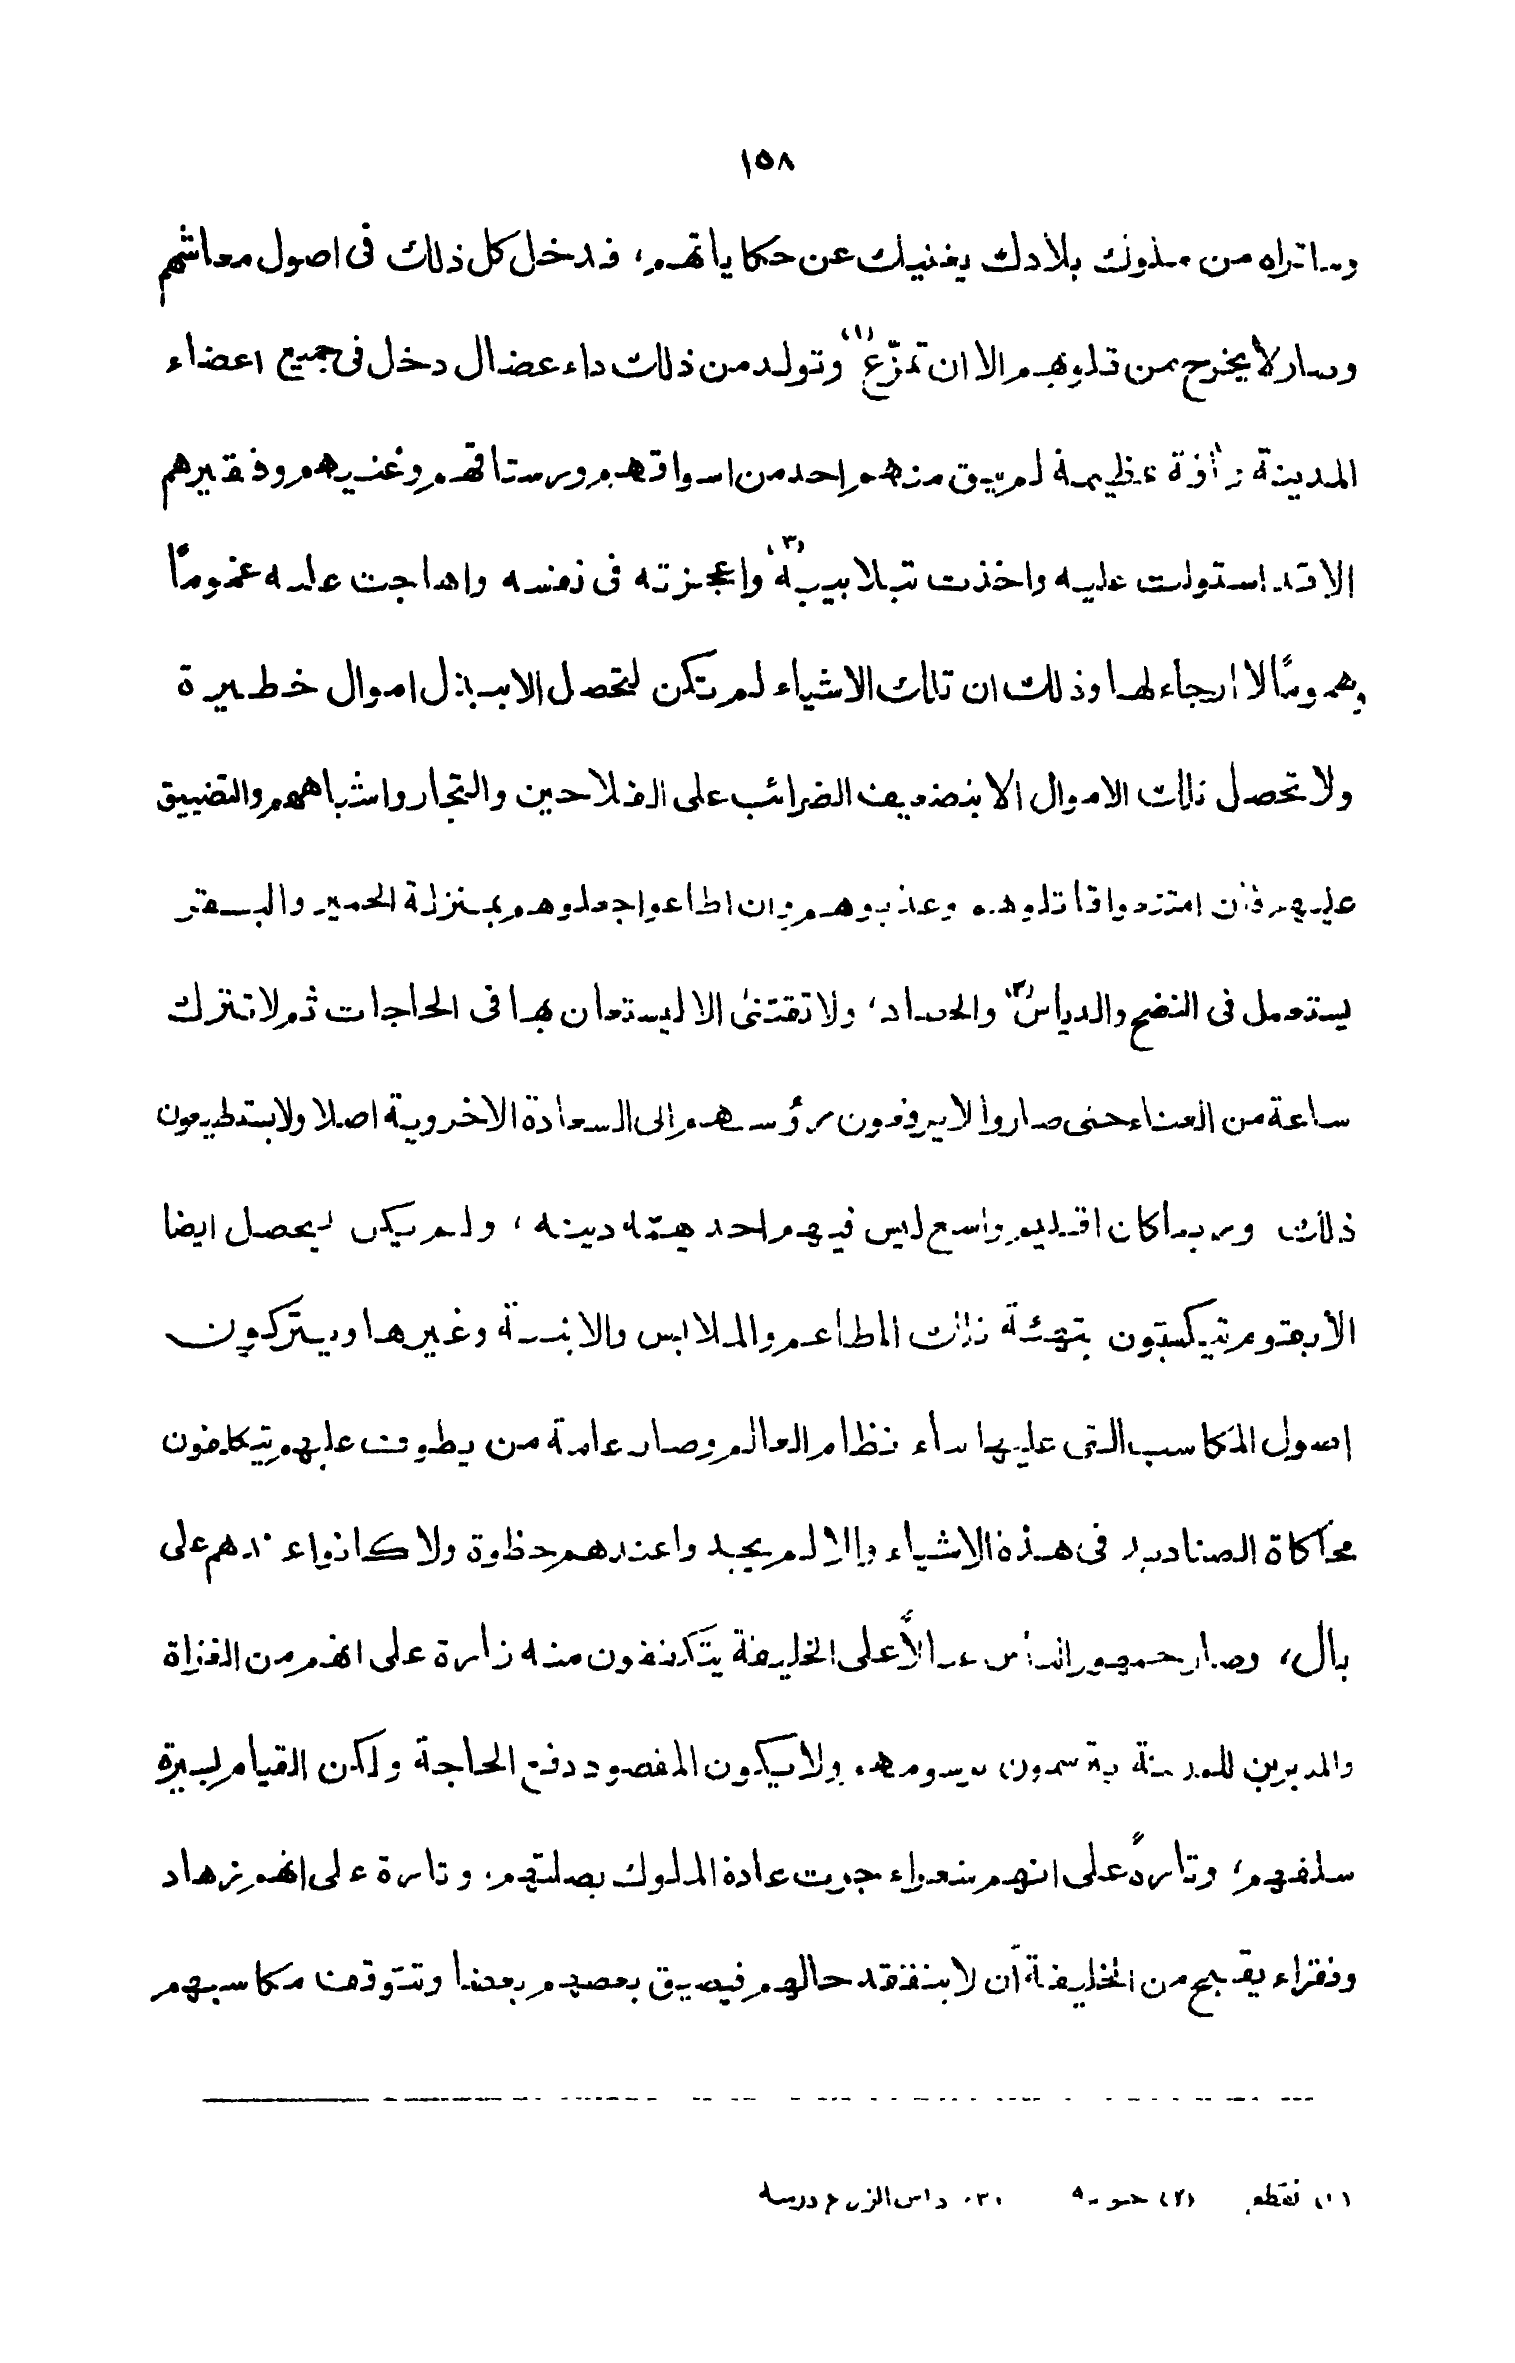 ١٥٨
وما تراه من ملوك بلادك يغنيك عن حكاياتهم، فدخل كل ذلك فى اصول معاشهم
وصار لا يخرج من قلوبهم الا ان تمزّع (١) وتولد من ذلك داء عضال دخل فى جميع اعضاء
المدينة وآفة عظيمة لم يبق منهم احد من اسواقهم ورستاقهم وغنيهم وفقيرهم
الا قد استولت عليه واخذت بتلابيبه (٣) واعجزته فى نفسه واهاجت عليه غمومًا
وهمومًا لا ارجاء لها وذلك ان تلك الاشياء لم تكن لتحصل الا ببذل اموال خطيرة
ولا تحصل تلك الاموال الا بتضعيف الضرائب على الفلاحين والتجار واشباههم والتضييق
عليهم فان امتنعوا قاتلوهم وعذبوهم وان اطاعوا جعلوهم بمنزلة الحمير والبقر
يستعمل فى النضح والدياس (٢) والحصاد، ولا تقتنى الا ليستعان بها فى الحاجات ثم لا تترك
ساعة من العناء حتى صاروا لا يرفعون رؤسهم الى السعادة الاخروية اصلا ولا يستطيعون
ذلك وربما كان اقليم واسع ليس فيهم احد يهمّه دينه، ولم يكن ليحصل ايضا
الا بقوم يتكسبون بتهيئة تلك المطاعم والملابس والابنية وغيرها ويتركون
اصول المكاسب التى عليها بناء نظام العالم وصار عامة من يطوف عليهم يتكلفون
محاكاة الصناديد فى هذه الاشياء والا لم يجدوا عندهم حظوة ولا كانوا عندهم على
بال، وصار جمهور الناس عيالاً على الخليفة يتكففون منه تارة على انهم من الغزاة
والمدبرين للمدينة يترسمون برسومهم ولا يكون المقصود دفع الحاجة ولكن القيام بسيرة
سلفهم، وتارةً على انهم شعراء جرت عادة الملوك بصلتهم، وتارة على انهم زهاد
وفقراء يقبح من الخليفة أن لا يتفقد حالهم فيضيق بعضهم بعضا وتتوقف مكاسبهم
(١) تقطع (٢) (٣) داس الزرع درسه